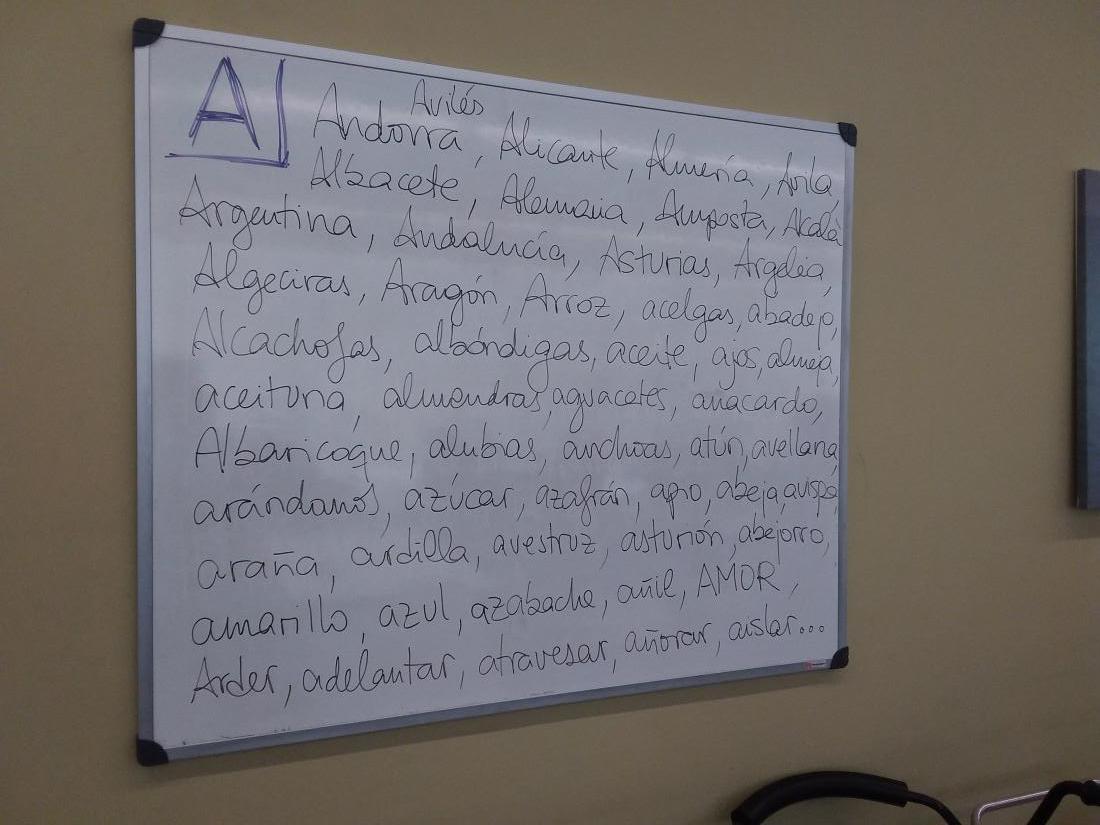 A
Avilés
Andorra, Alicante, Almería, Ávila,
Albacete, Alemania, Amposta, Alcalá
Argentina, Andalucía, Asturias, Argelia,
Algeciras, Aragón, Arroz, acelgas, abadejo,
Alcachofas, albóndigas, aceite, ajos, almeja,
aceituna, almendras, aguacates, anacardo,
Albaricoque, alubias, anchoas, atún, avellana
arándanos, azúcar, azafrán, apio, abeja, avispa,
araña, ardilla, avestruz, asturión, abejorro,
amarillo, azul, azabache, añil, AMOR,
Arder, adelantar, atravesar, añorar, aislar...